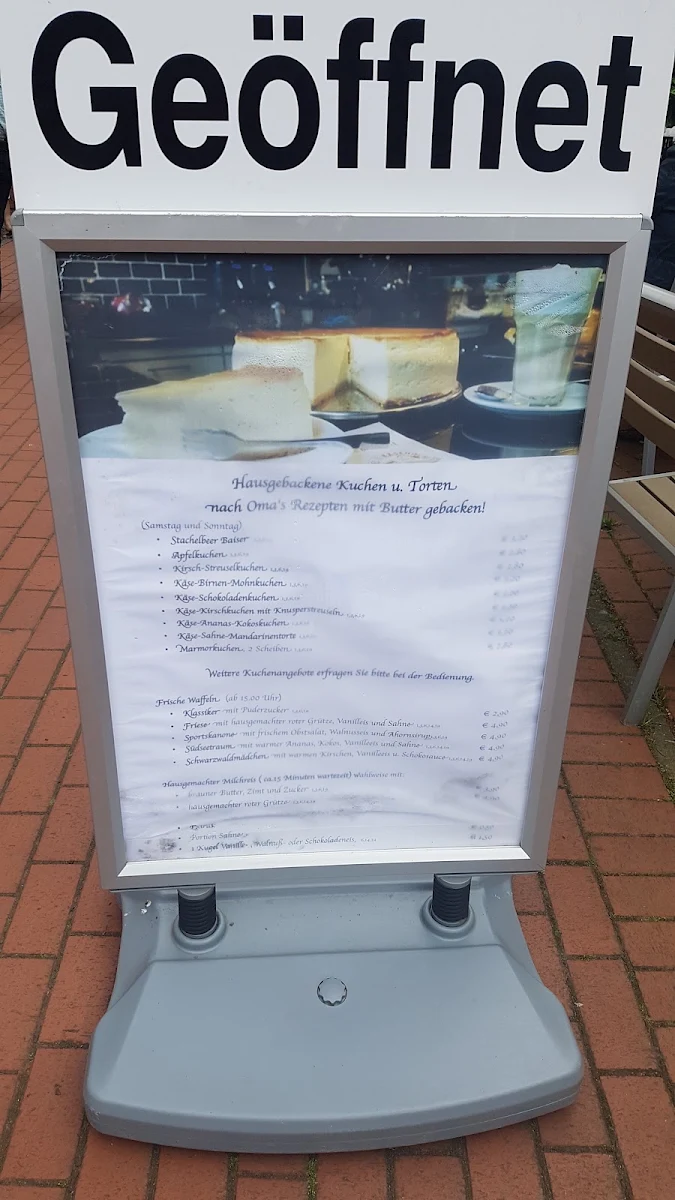 Geöffnet
Hausgebackene Kuchen u. Torten
nach Oma's Rezepten mit Butter gebacken!
(Samstag und Sonntag)
• Stachelbeer Baiser
• Apfelkuchen
• Kirsch-Streuselkuchen
• Käse-Birnen-Mohnkuchen
• Käse-Schokoladenkuchen
• Käse-Kirschkuchen mit Knusperstreuseln
• Käse-Ananas-Kokoskuchen
• Käse-Sahne-Mandarinentorte
• Marmorkuchen, 2 Scheiben
Weitere Kuchenangebote erfragen Sie bitte bei der Bedienung.
Frische Waffeln (ab 15.00 Uhr)
• Klassiker mit Puderzucker € 2,90
• Friese mit hausgemachter roter Grütze, Vanilleeis und Sahne € 4,90
• Sportskanone mit frischem Obstsalat, Walnusseis und Ahornsirup € 4,90
• Südseetraum mit warmer Ananas, Kokos, Vanilleeis und Sahne € 4,90
• Schwarzwaldmädchen mit warmen Kirschen, Vanilleeis u. Schokosauce € 4,90
Hausgemachter Milchreis (ca.15 Minuten wartezeit) Wahlweise mit:
• brauner Butter, Zimt und Zucker
• hausgemachter roter Grütze
• Portion Sahne
• 1 Kugel Vanille-, Walnuß- oder Schokoladeneis,